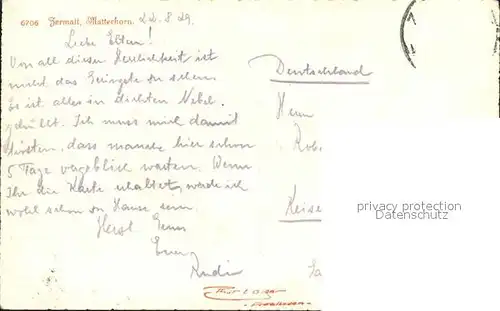 6706 Zermatt, Matterhorn. 22.8.29.
Liebe Eltern!
Von all dieser Herrlichkeit ist
nicht das Geringste zu sehen.
Es ist alles in dichten Nebel
gehüllt. Ich muss mich damit
trösten, dass manche hier schon
5 Tage vergeblich warten. Wenn
Ihr die Karte erhaltet, werde ich
wohl schon zu Hause sein.
Herzl. Gruss
Euer
Rudi
Deutschland
Herrn
Rob
Keise
privacy protection
Datenschutz